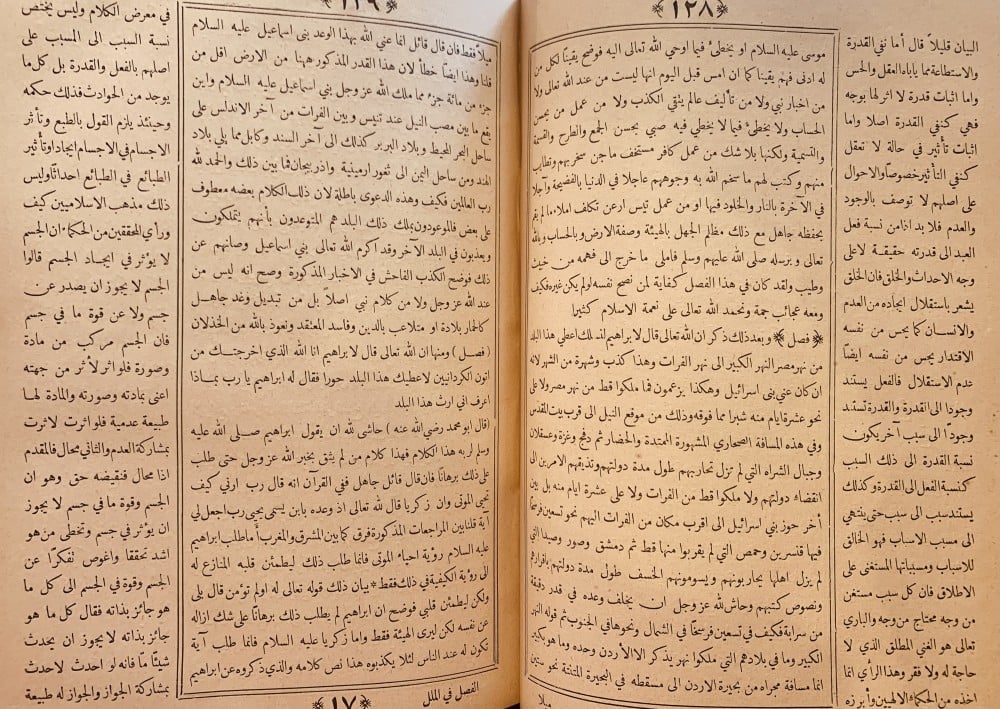 ﴿ ١٢٨ ﴾
موسى عليه السلام او يخطئ فيما اوحي الله تعالى اليه فوضح يقيناً لكل من
له ادنى فهم يقينا كما ان امس قبل اليوم انها ليست من عند الله تعالى ولا
من اخبار نبي ولا من تأليف عالم يتقي الكذب ولا من عمل من يحسن
الحساب ولا يخطئ فيما لا يخطي فيه صبي يحسن الجمع والطرح والقسمة
والتسمية ولكنها بلا شك من عمل كافر مستخف ماجن سخر بهم وتطايب
منهم وكتب لهم ما سخم الله به وجوههم عاجلا في الدنيا بالفضيحة وآجلا
في الآخرة بالنار والخلود فيها او من عمل تيس ارعن تكلف املاء ما لم يقم
بحفظه جاهل مع ذلك مظلم الجهل بالهيئة وصفة الارض وبالحساب وبالله
تعالى وبرسله صلى الله عليهم وسلم فاملى ما خرج الى فهمه من خبث
وطيب ولقد كان في هذا الفصل كفاية لمن نصح نفسه لو لم يكن غيره فكيف
ومعه عجائب جمة ونحمد الله تعالى على نعمة الاسلام كثيرا
﴿ فصل ﴾ وبعد ذلك ذكر ان الله تعالى قال لابراهيم لنسلك اعطي هذا البلد
من نهر مصر النهر الكبير الى نهر الفرات وهذا كذب وشهرة من الشهر لانه
ان كان عنى بني اسرائيل وهكذا يزعمون فما ملكوا قط من نهر مصر ولا على
نحو عشرة ايام منه شبرا مما فوقه وذلك من موقع النيل الى قرب بيت المقدس
وفي هذه المسافة الصحاري المشهورة الممتدة والحضار ثم رفح وغزة وعسقلان
وجبال الشراه التي لم تزل تحاربهم طول مدة دولتهم وتذيقهم الامرين الى
انقضاء دولتهم ولا ملكوا قط من الفرات ولا على عشرة ايام منه بل بين
آخر حوز بني اسرائيل الى اقرب مكان من الفرات اليهم نحو تسعين فرسخا
فيها قنسرين وحمص التي لم يقربوا منها قط ثم دمشق وصور وصيدا التي
لم يزل اهلها يحاربونهم ويسومونهم الخسف طول مدة دولتهم باقرارهم
ونصوص كتبهم وحاش لله عز وجل ان يخلف وعده في قدر دقيقة
من سرابة فكيف في تسعين فرسخا في الشمال ونحوها في الجنوب ثم قوله النهر
الكبير وما في بلادهم التي ملكوا نهر يذكر الا الأردن وحده وما هو بكبير
انما مسافة مجراه من بحيرة الاردن الى مسقطه في البحيرة المنتنة نحو ستين
ميلا
البيان قليلاً قال أما نفي القدرة
والاستطاعة مما ياباه العقل والحس
واما اثبات قدرة لا اثر لها بوجه
فهي كنفي القدرة اصلا واما
اثبات تأثير في حالة لا تعقل
كنفي التأثير خصوصاً والاحوال
على اصلهم لا توصف بالوجود
والعدم فلا بد اذا من نسبة فعل
العبد الى قدرته حقيقة لا على
وجه الاحداث والخلق فان الخلق
يشعر باستقلال ايجاده من العدم
والانسان كما يحس من نفسه
الاقتدار يحس من نفسه ايضاً
عدم الاستقلال فالفعل يستند
وجودا الى القدرة والقدرة تستند
وجوداً الى سبب آخر يكون
نسبة القدرة الى ذلك السبب
كنسبة الفعل الى القدرة وكذلك
يستند سبب الى سبب حتى ينتهي
الى مسبب الاسباب فهو الخالق
للاسباب ومسبباتها المستغنى على
الاطلاق فان كل سبب مستغن
من وجه محتاج من وجه والباري
تعالى هو الغني المطلق الذي لا
حاجة له ولا فقر وهذا الرأي انما
اخذه من الحكماء الالهيين وأبرزه
﴿ ١٢٩ ﴾
ميلاً فقط فان قال قائل انما عنى الله بهذا الوعد بني اسماعيل عليه السلام
قلنا وهذا ايضاً خطأ لان هذا القدر المذكور ههنا من الارض اقل من
جزء من مائة جزء مما ملك الله عز وجل بني اسماعيل عليه السلام واين
يقع ما بين مصب النيل عند تنيس وبين الفرات من آخر الاندلس على
ساحل البحر المحيط وبلاد البربر كذلك الى آخر السند وكابل مما يلي بلاد
الهند ومن ساحل اليمن الى ثغور ارمينية واذربيجان فما بين ذلك والحمد لله
رب العالمين فكيف وهذه الدعوى باطلة لان ذلك الكلام بعضه معطوف
على بعض فالموعودون بملك ذلك البلد هم المتوعدون بأنهم يتملكون
ويعذبون في البلد الآخر وقد اكرم الله تعالى بني اسماعيل وصانهم عن
ذلك فوضح الكذب الفاحش في الاخبار المذكورة وصح انه ليس من
عند الله عز وجل ولا من كلام نبي اصلاً بل من تبديل وغد جاهل
كالحمار بلادة او متلاعب بالدين وفاسد المعتقد ونعوذ بالله من الخذلان
( فصل ) ومنها ان الله تعالى قال لابراهيم انا الله الذي اخرجتك من
اتون الكردانيين لاعطيك هذا البلد حورا فقال له ابراهيم يا رب بماذا
اعرف اني ارث هذا البلد
(قال ابو محمد رضي الله عنه ) حاشى لله ان يقول ابراهيم صلى الله عليه
وسلم لربه هذا الكلام فهذا كلام من لم يثق بخبر الله عز وجل حتى طلب
على ذلك برهاناً فان قال قائل جاهل ففي القرآن انه قال رب ارني كيف
تحيي الموتى وان زكريا قال لله تعالى اذ وعده بابن يسمى يحيى رب اجعل لي
آية قلنا بين المراجعات المذكورة فرق كما بين المشرق والمغرب أما طلب ابراهيم
عليه السلام رؤية احياء الموتى فانما طلب ذلك ليطمئن قلبه المنازع له
الى رؤية الكيفية في ذلك فقط * بيان ذلك قوله تعالى له اولم تؤمن قال بلى
ولكن ليطمئن قلبي فوضح ان ابراهيم لم يطلب ذلك برهاناً على شك ازاله
عن نفسه لكن ليرى الهيئة فقط واما زكريا عليه السلام فانما طلب آية
تكون له عند الناس لئلا يكذبوه هذا نص كلامه والذي ذكروه عن ابراهيم
الفصل في الملل
﴿ ١٧ ﴾
في معرض الكلام وليس يختص
نسبة السبب الى المسبب على
اصلهم بالفعل والقدرة بل كل ما
يوجد من الحوادث فذلك حكمه
وحينئذ يلزم القول بالطبع وتأثر
الاجسام في الاجسام ايجاداً وتأثير
الطبائع في الطبائع احداثاً وليس
ذلك مذهب الاسلاميين كيف
ورأي المحققين من الحكماء ان الجسم
لا يؤثر في ايجاد الجسم قالوا
الجسم لا يجوز ان يصدر عن
جسم ولا عن قوة ما في جسم
فان الجسم مركب من مادة
وصورة فلو اثر لأثر من جهته
اعنى بمادته وصورته والمادة لها
طبيعة عدمية فلو اثرت لاثرت
بمشاركة العدم والثاني محال فالمقدم
اذا محال فنقيضه حق وهو ان
الجسم وقوة ما في جسم لا يجوز
ان يؤثر في جسم وتخطى من هو
اشد تحققا واغوص تفكرًا عن
الجسم وقوة في الجسم الى كل ما
هو جائز بذاته فقال كل ما هو
جائز بذاته لا يجوز ان يحدث
شيئاً ما فانه لو احدث لاحدث
بمشاركة الجواز والجواز له طبيعة